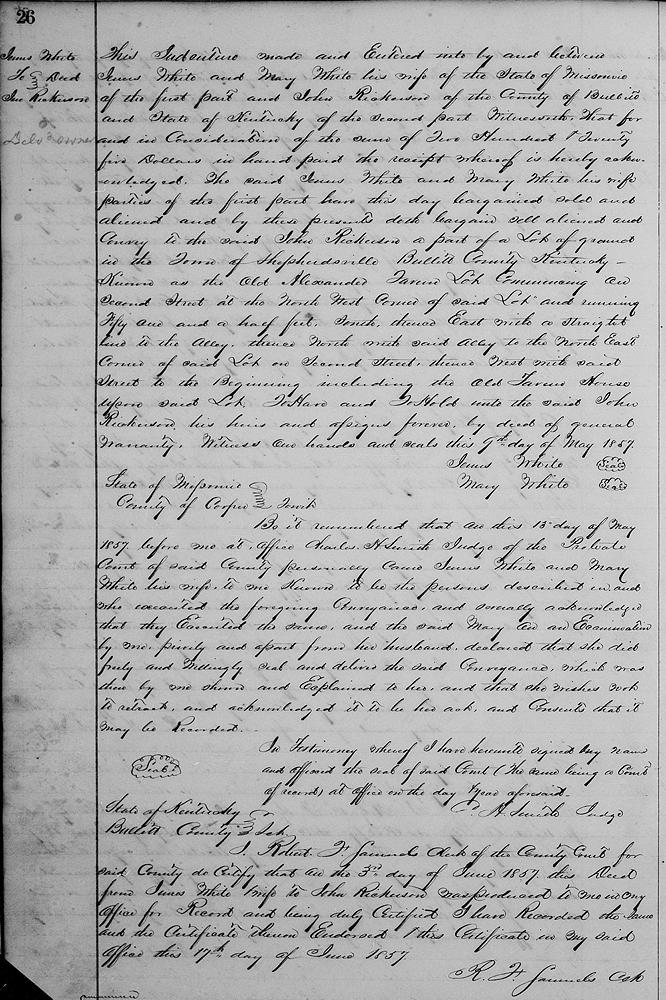 26
James White
To Deed
Jno Rickerson
Delv owner
This Indenture made and Entered into by and between
James White and Mary White his wife of the State of Missourie
of the first part and John Rickerson of the County of Bullitt
and State of Kentucky of the second part Witnesseth. That for
and in Consideration of the sum of Two Hundred & Twenty
five Dollars in hand paid the receipt whereof is hereby ackn-
owledged. The said James White and Mary White his wife
parties of the first part have this day bargained sold and
aliened and by these presents doth bargain sell aliened and
Convey to the said John Rickerson a part of a Lot of ground
in the Town of Shepherdsville Bullitt County Kentucky -
Known as the Old Alexander Tavern Lot Commencing on
Second Street at the North West Corner of said Lot and running
Fifty one and a half feet. South, thence East with a straight
line to the Alley, thence North with said Alley to the North East
Corner of said Lot on Second Street, thence West with said
Street to the Beginning including the Old Tavern House
upon said Lot. To Have and To Hold unto the said John
Rickerson, his heirs and assigns forever, by deed of general
Warranty. Witness our hands and seals this 9th day of May 1857.
James White Seal
Mary White Seal
State of Missourie
County of Cooper Towit
Be it remembered that on this 13th day of May
1857 before me at office Charles. H. Smith Judge of the Probate
Court of said County personally Came James White and Mary
White his wife, to me Known to be the persons described in, and
who executed the foregoing Conveyance, and severally acknowledged
that they Executed the same, and the said Mary on an Examination
by me, privily and apart from her husband, declared that she did
freely and Willingly seal and deliver the said Conveyance, which was
then by me shown and Explained to her, and that she wishes not
to retract, and acknowledged it to be her act, and Consents that it
may be Recorded.
In Testimony whereof I have hereunto signed my name
Seal and affixed the seal of said Court (The same being a Court
of record) at office on the day & year aforesaid.
C. H. Smith Judge
State of Kentucky
Bullitt County Sct
I. Robert. F. Samuels Clerk of the County Court for
said County do Certify that on the 3rd day of June 1857 this Deed
from James White & wife to John Rickerson was produced to me in my
office for Record and being duly Certified I have Recorded the same
and the Certificate thereon Endorsed & this Certificate in my said
office this 17th day of June 1857
R. F. Samuels Clk